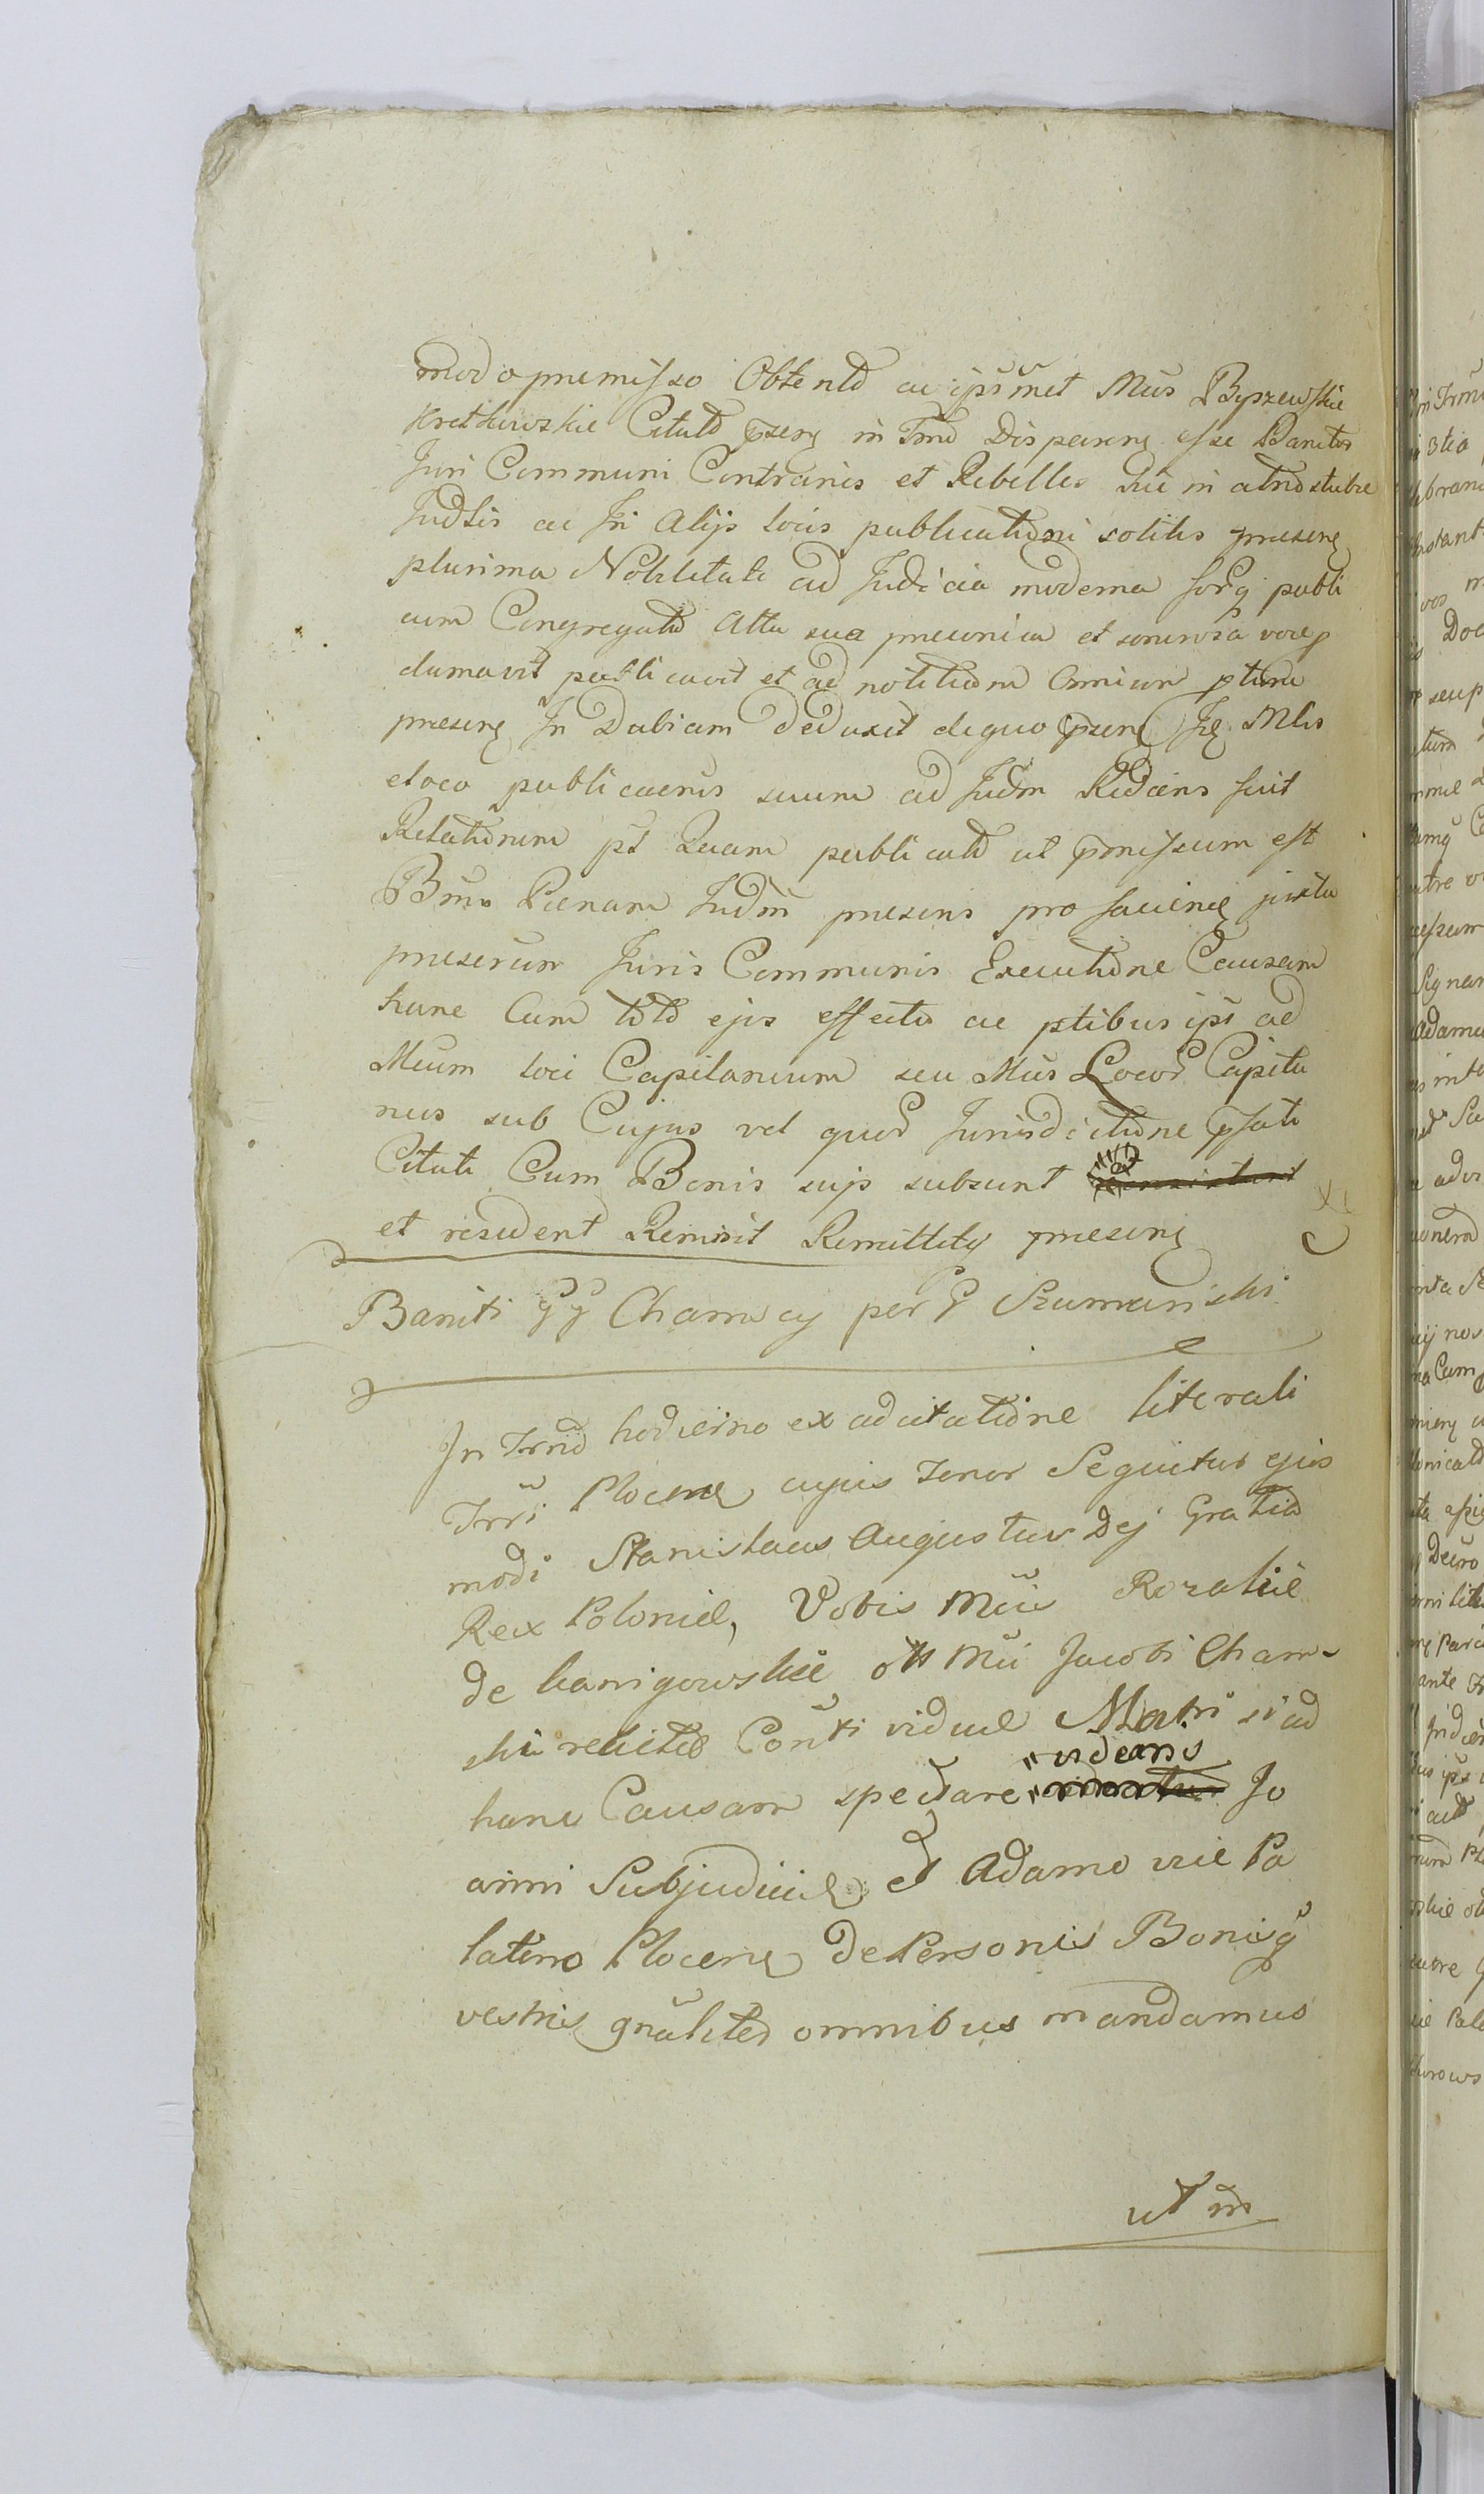 modo premisso Obtento ac ipsmet Mus Byszewskie
Kretkowskie Citato pseng in Tmo Disparen esse Banitos
Juri Communi Contrarios et Rebelles hic in atrio stubae
Judlis ac In Alijs locis publicationi solitis presens
plurima Nobilitate ad Judicia moderna forq publi
cum Congregata Alta sua preconica et sonorosa voce p
clamavit publicavit et ad notitiam Omnium ptium
presens In Dubiam deduxit de quo
eloco publicaens suum ad Judm Rediens fuit
Relationem pt Quam publicato ut pmissum est
Bnis Paenam Judm presens pro faciene juxta
preserum Juris Communis Executione Causam
hanc Cum toto ejus effectu ac ptibus ips ad
Meum loci Capitaneum seu Mus Locor Capita
neus sub Cujus vel quor Jurisdictione psati
Citati Cum Bonis suis subsunt
et resident Remisit Remittitq presens
Baniti gg Chamscy per G Szumanski
In Trno hodierno ex adcitatione literali
Trri Plocens cujus Tenor Sequitur ejus
modi Stanislaus Augustus Dej Gratia
Rex Poloniae, Vobis Mci Rozaliae
de Kanigowskie ott Mci Jacobi Cham-
ski relictae Conti viduae Matri si ad
hanc Causam spectare videans Jo
anni Subjudici et Adamo vice Pa
latino Plocens de Personis Bonisq
vestris gnaliter omnibus mandamus
ut in